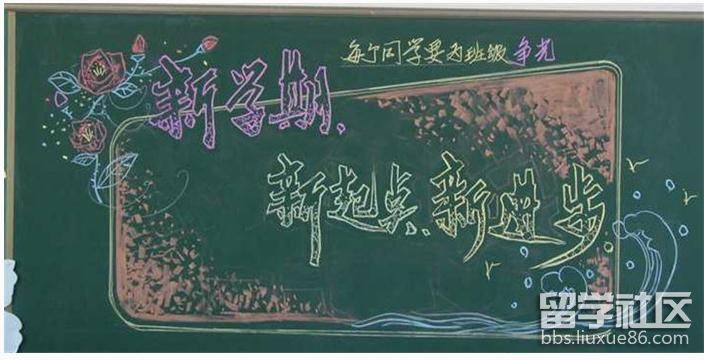 每个同学要为班级争光
新学期、
新起点、新进步
留学社区
bbs.liuxue86.com